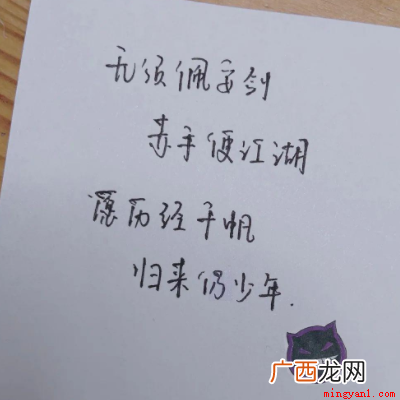 无须佩妄剑
赤手便江湖
愿历经千帆
归来仍少年.
广西龙网
mingyan1.com